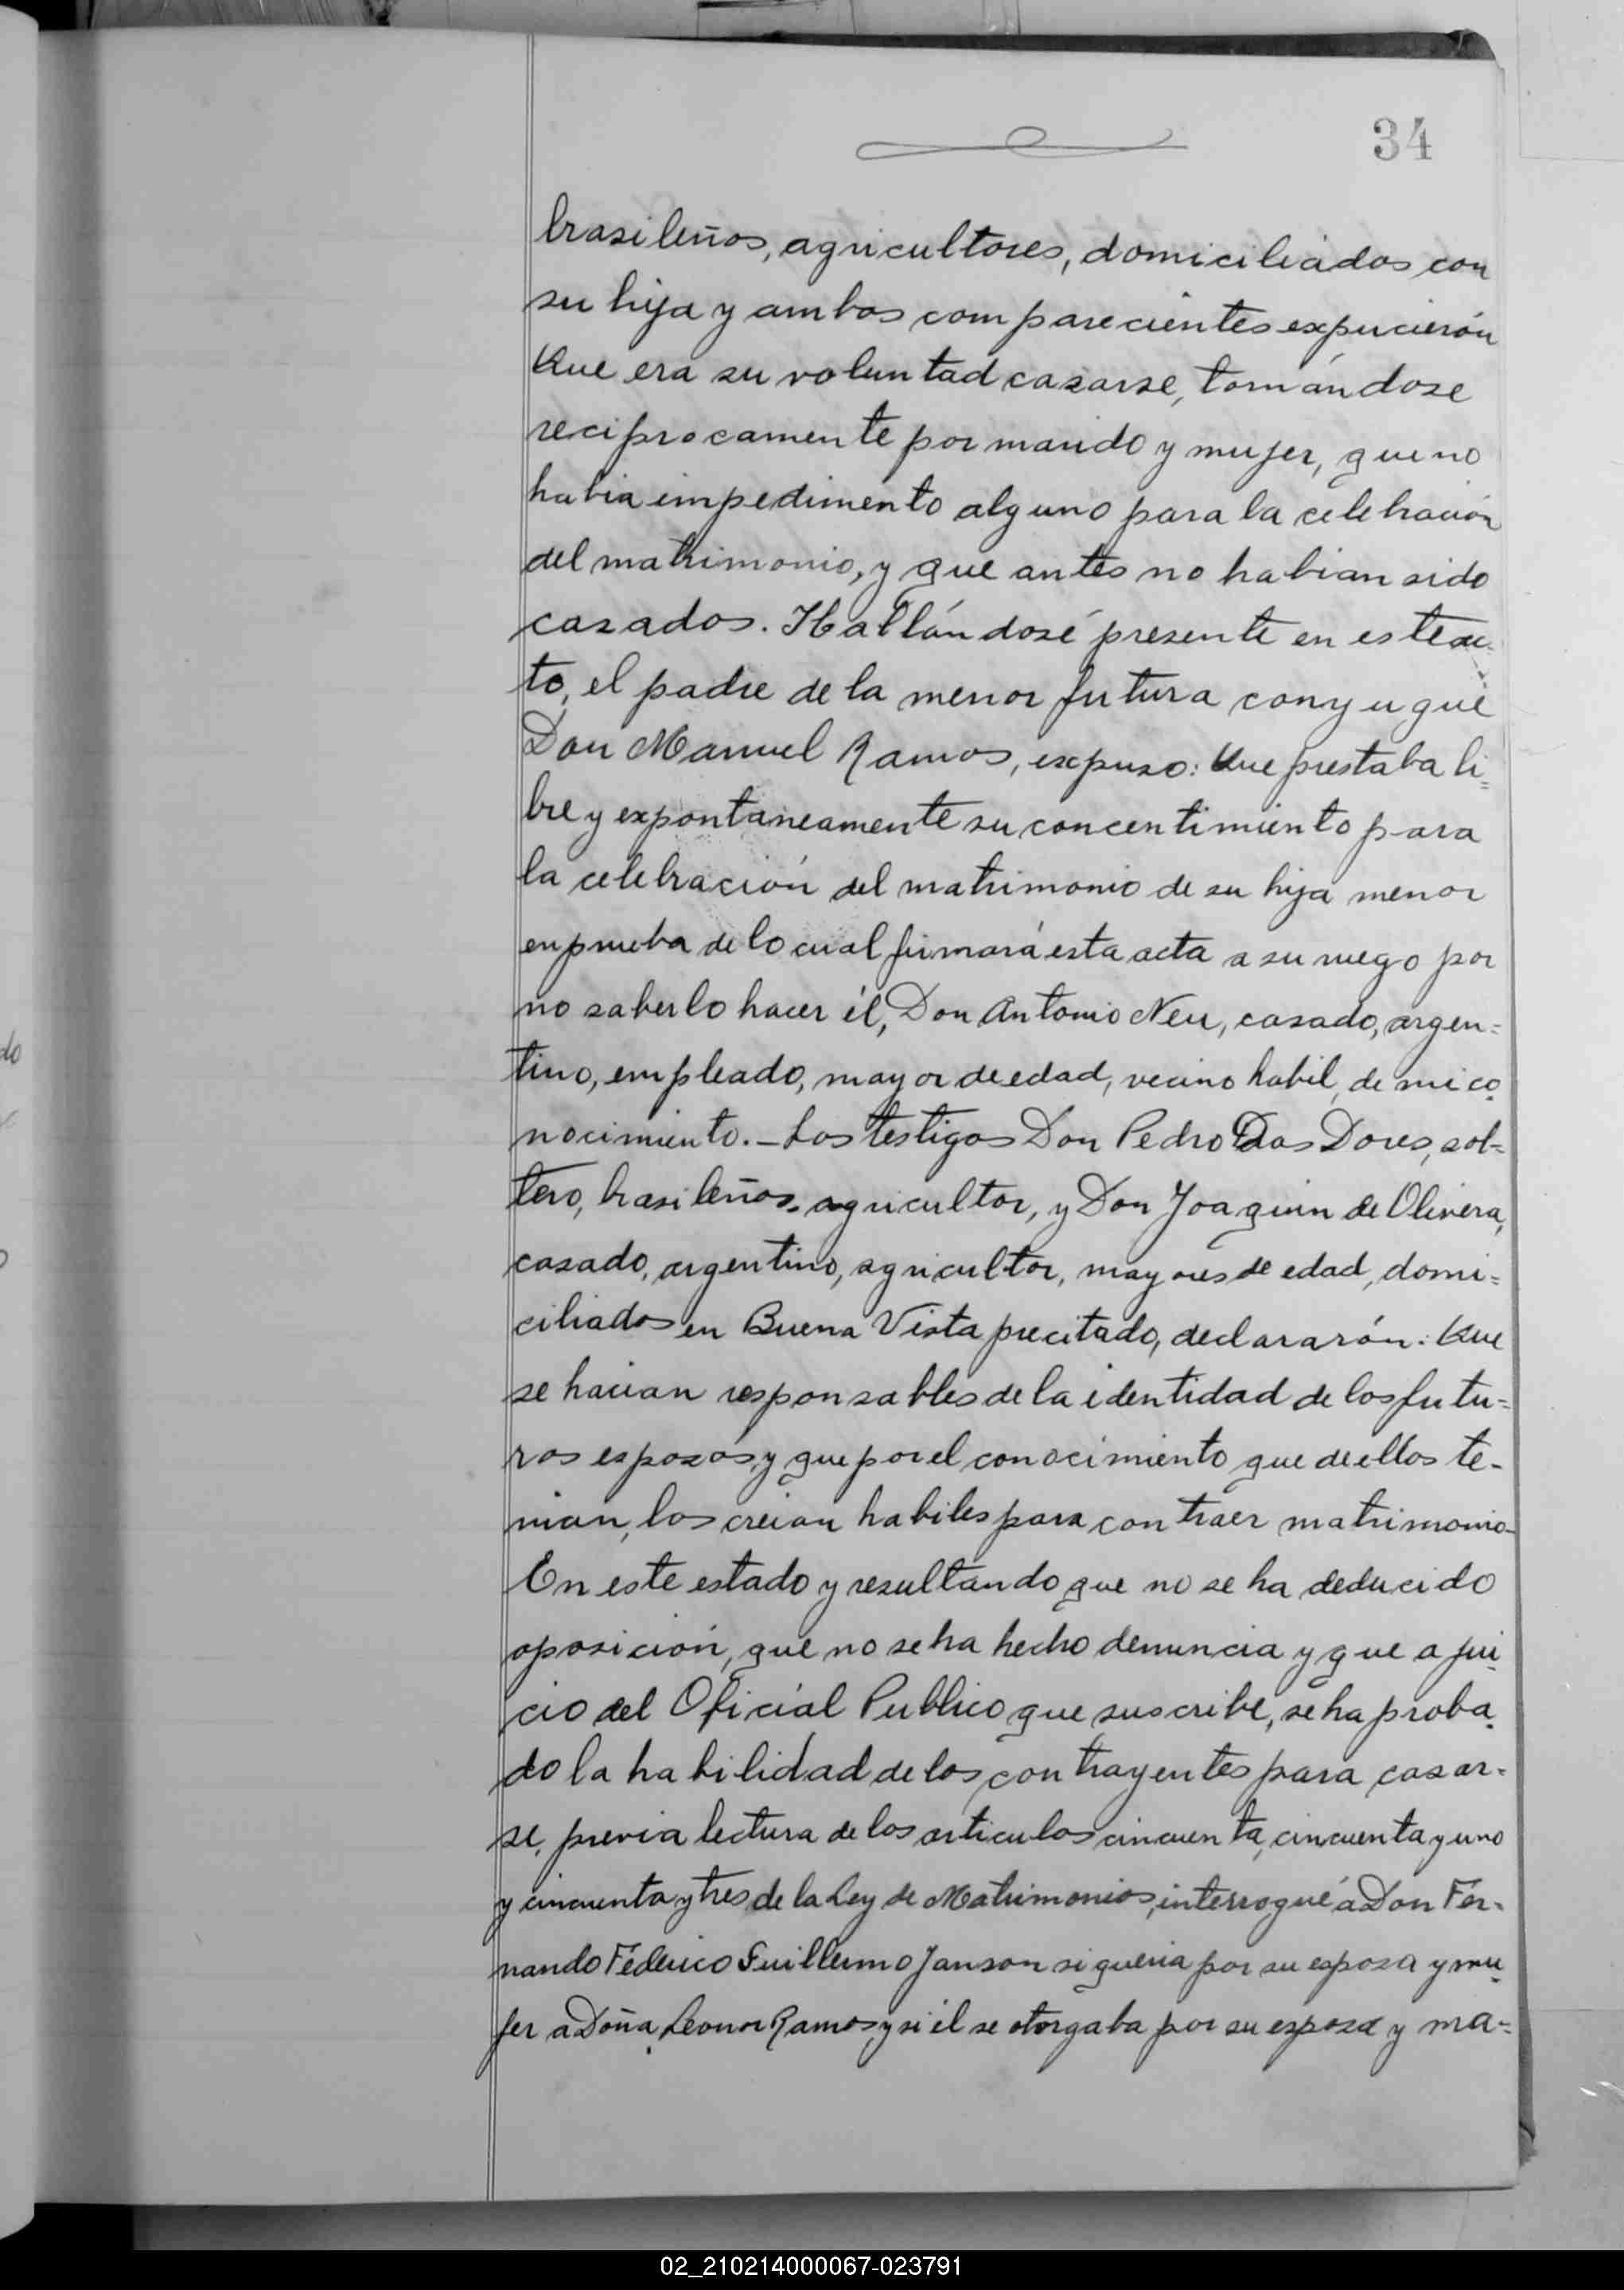 34
brasileños, agricultores, domiciliados con
su hija y ambos comparecientes expucierón
Que era su voluntad casarse, tomándose
reciprocamente por marido y mujer, que no
habia impedimento alguno para la celebración
del matrimonio, y que antes no habian sido
casados. Hallándosé presente en este ac-
to, el padre de la menor futura conyugue
Don Manuel Ramos, expuso: Que prestaba li=
bre y expontaneamente su concentimiento para
la celebración del matrimonio de su hija menor
en prueba de lo cual firmará esta acta a su ruego por
no saberlo hacer él, Don Antonio Neu, casado, argen=
tino, empleado, mayor de edad, vecino habil, de mi co-
nocimiento.- Los testigos Don Pedro Das Dores, sol=
tero, brasileños, agricultor, y Don Joaquin de Olivera,
casado, argentino, agricultor, mayores de edad, domi=
ciliados en Buena Vista precitado, declararón: Que
se hacian responsables de la identidad de los futu=
ros esposos, y que por el conocimiento que de ellos te-
nian, los creian habiles para contraer matrimonio-
En este estado y resultando que no se ha deducido
oposición, que no se ha hecho denuncia y que a jui
cio del Oficial Publico que suscribe, se ha proba-
do la habilidad de los contrayentes para casar-
se, previa lectura de los articulos cincuenta, cincuenta y uno
y cincuenta y tres de la Ley de Matrimonios, interrogué a Don Fer-
nando Féderico Guillermo Janson si queria por su esposa y mu
jer a Doña Leonor Ramos y si él se otorgaba por su esposa y ma=
02_210214000067-023791